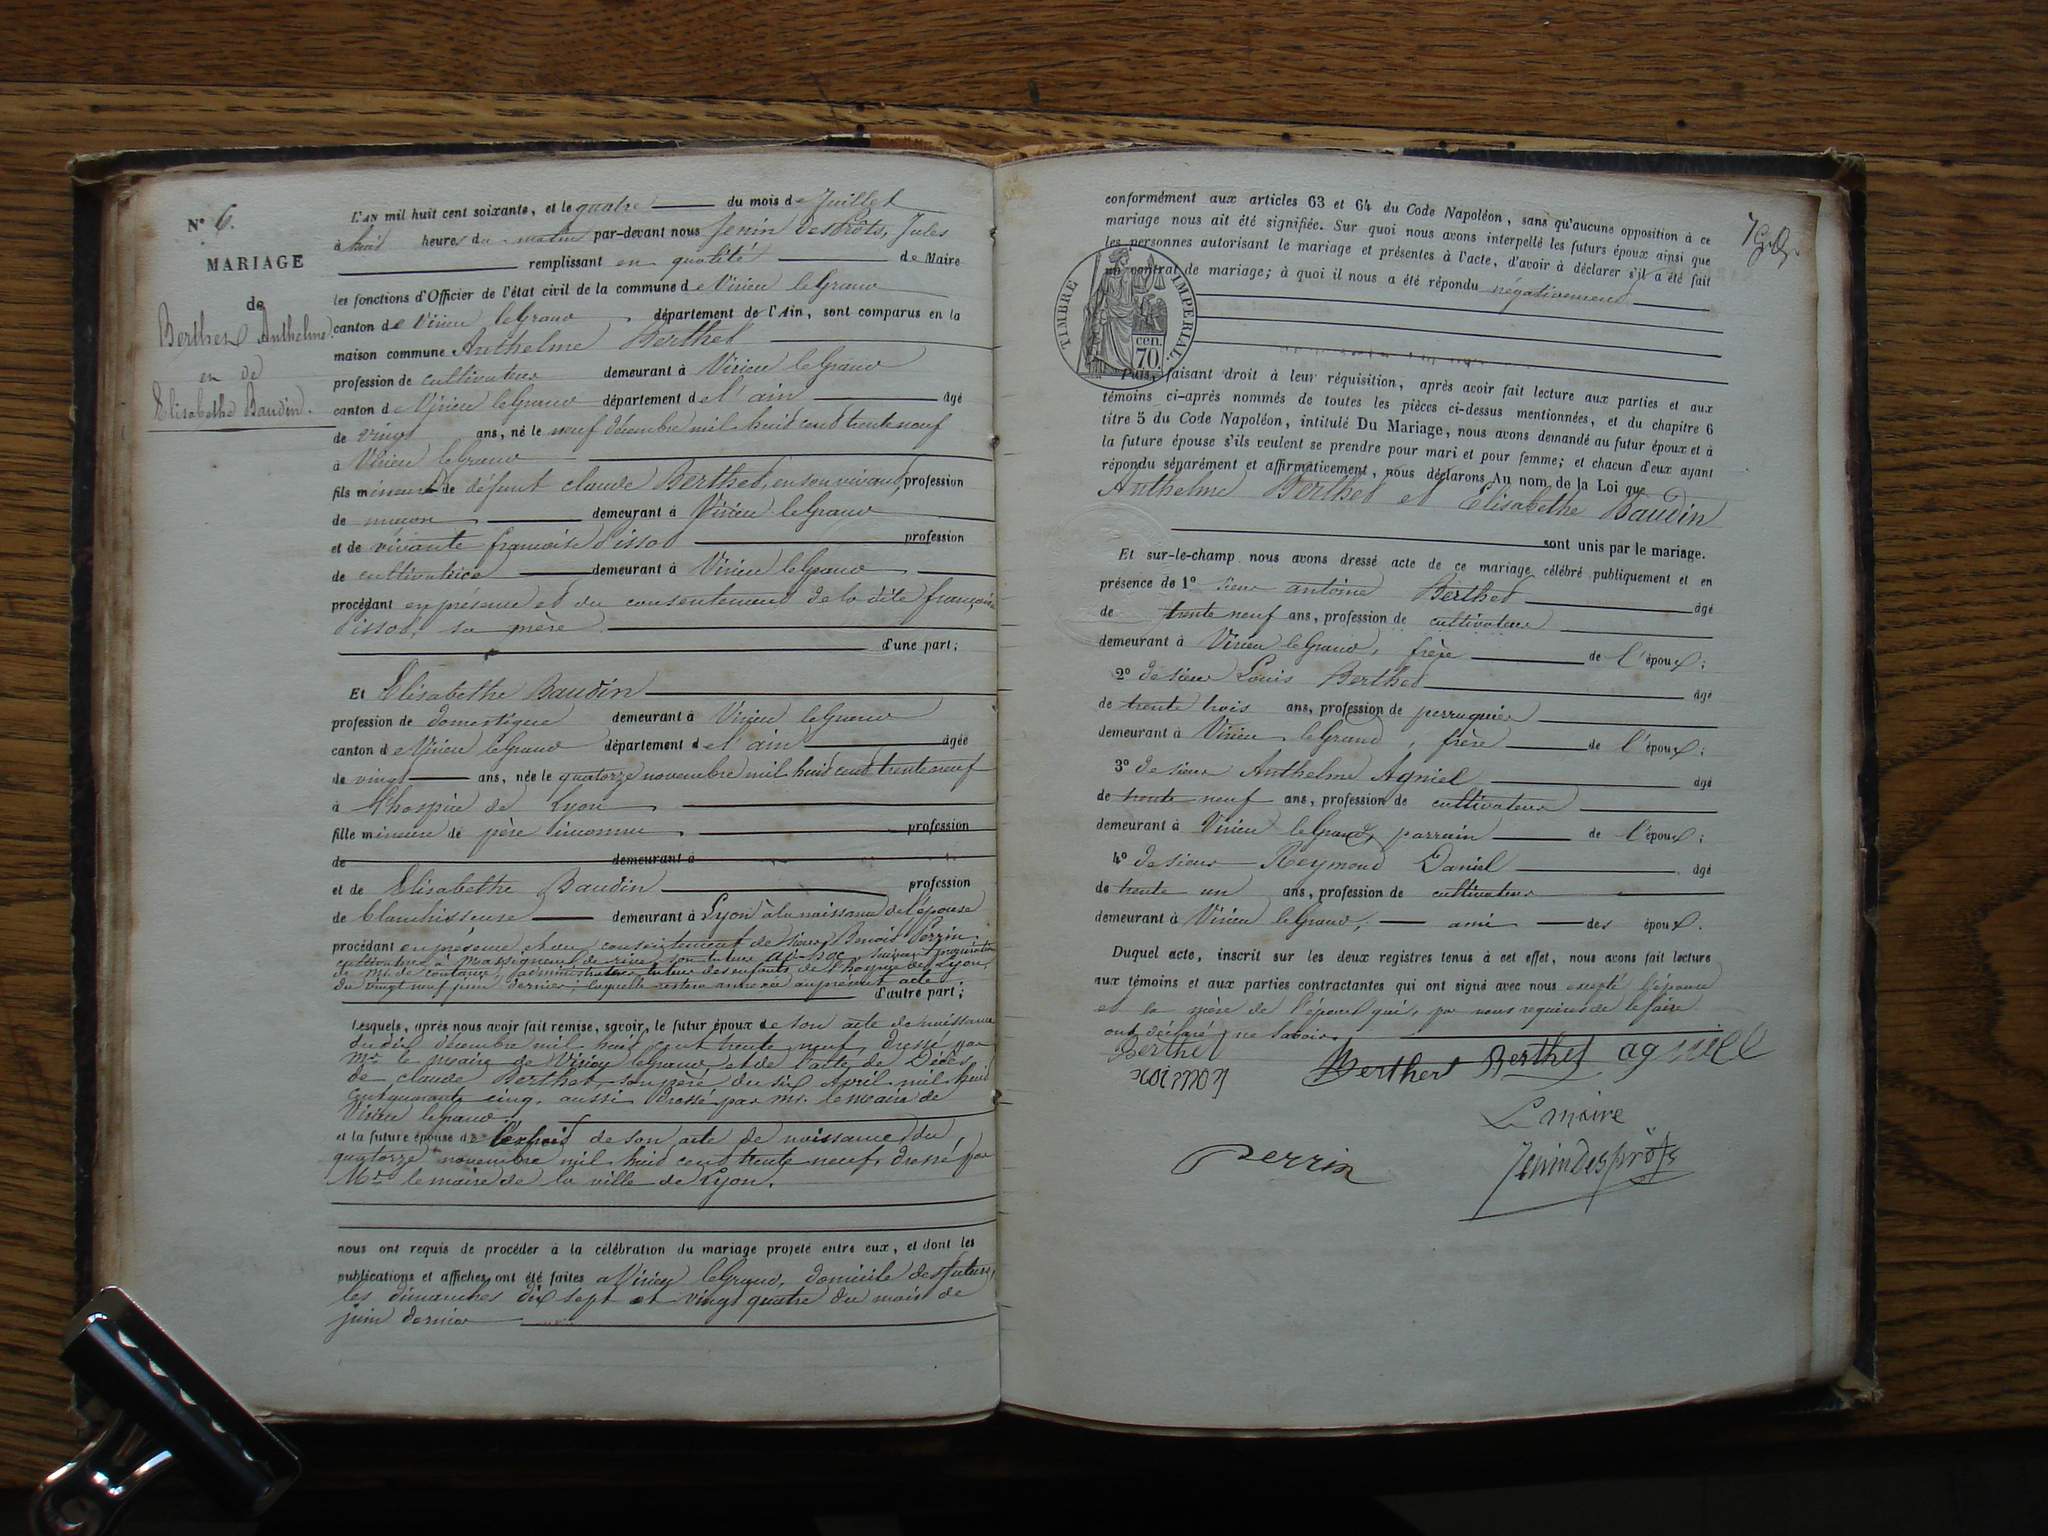 N° 6.
MARIAGE
de
Berthet Anthelme
et de
Elisabethe Baudin.
L'AN mil huit cent soixante, et le quatre du mois de Juillet
à huit heures du matin par-devant nous Jenin Desprôts, Jules
remplissant en qualité de Maire
les fonctions d'Officier de l'état civil de la commune de Virieu le Grand
canton de Virieu le Grand, département de l'Ain, sont comparus en la
maison commune Anthelme Berthet
profession de cultivateur demeurant à Virieu le Grand
canton de Virieu le Grand département de l'ain âgé
de vingt ans, né le neuf décembre mil huit cent trente neuf
à Virieu le Grand
fils mineur de défunt claude Berthet, en son vivant, profession
de maçon demeurant à Virieu le Grand
et de vivante françoise d'issot profession
de cultivatrice demeurant à Virieu le Grand
procédant en présence et du consentement de la dite françoise
d'issot, sa mère
d'une part;
Et Elisabethe Baudin
profession de domestique demeurant à Virieu le Grand
canton de Virieu le Grand département de l'ain âgée
de vingt ans, née le quatorze novembre mil huit cent trente neuf
à l'hospice de Lyon
fille mineure de père inconnu profession
de demeurant à
et de Elisabethe Baudin profession
de blanchisseuse demeurant à Lyon à la naissance de l'épouse
procédant en présence et au consentement de sieur Benoit Perrin
cultivateur à Massigneu de rive, son tuteur ad-hoc, suivant procuration
de Mr. de administrateur tuteur des enfants de l'hospice de Lyon,
du vingt neuf juin dernier; laquelle restera annexée au présent acte
d'autre part;
Lesquels, après nous avoir fait remise, savoir, le futur époux de son acte de naissance
du dix décembre mil huit cent trente neuf, dressé par
Mr. le maire de Virieu le Grand, et de l'acte de Décès
de claude Berthet, son père du six Avril mil huit
cent quarante cinq, aussi dressé par Mr. le maire de
Virieu le grand
et la future épouse de l'extrait de son acte de naissance du
quatorze novembre mil huit cent trente neuf, dressé par
Mr. le maire de la ville de Lyon.
nous ont requis de procéder à la célébration du mariage projeté entre eux, et dont les
publications et affiches ont été faites à Virieu le Grand, domicile des futurs,
les dimanches dix sept et vingt quatre du mois de
juin dernier
conformément aux articles 63 et 64 du Code Napoléon, sans qu'aucune opposition à ce
mariage nous ait été signifiée. Sur quoi nous avons interpellé les futurs époux ainsi que
les personnes autorisant le mariage et présentes à l'acte, d'avoir à déclarer s'il a été fait
un contrat de mariage; à quoi il nous a été répondu négativement
TIMBRE IMPERIAL.
cen.
70.
Puis, faisant droit à leur réquisition, après avoir fait lecture aux parties et aux
témoins ci-après nommés de toutes les pièces ci-dessus mentionnées, et du chapitre 6
titre 5 du Code Napoléon, intitulé Du Mariage, nous avons demandé au futur époux et à
la future épouse s'ils veulent se prendre pour mari et pour femme; et chacun d'eux ayant
répondu séparément et affirmativement, nous déclarons Au nom de la Loi que
Anthelme Berthet et Elisabethe Baudin
sont unis par le mariage.
Et sur-le-champ nous avons dressé acte de ce mariage célébré publiquement et en
présence de 1° sieur antoine Berthet âgé
de trente neuf ans, profession de cultivateur
demeurant à Virieu le Grand, frère de l'époux;
2° de sieur Louis Berthet âgé
de trente trois ans, profession de perruquier
demeurant à Virieu le Grand, frère de l'époux;
3° de sieur Anthelme Agniel âgé
de trente neuf ans, profession de cultivateur
demeurant à Virieu le Grand, parrain de l'époux;
4° de sieur Reymond Daniel âgé
de trente un ans, profession de cultivateur
demeurant à Virieu le Grand, ami des époux.
Duquel acte, inscrit sur les deux registres tenus à cet effet, nous avons fait lecture
aux témoins et aux parties contractantes qui ont signé avec nous excepté l'épouse
et la mère de l'époux qui, par nous requises de le faire
ont déclaré ne savoir.
Berthet Berthet Berthet agniel
Le maire
Perrin Jenin Desprôts